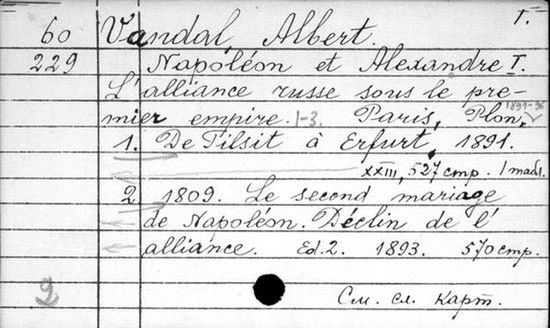 I.
60 Vandal, Albert.
229 Napoléon et Alexandre I.
L'alliance russe sous le pre-
mier empire. 1-3. Paris, Plon, 1891-96
1. De Tilsit à Erfurt, 1891.
XXIII, 527 стр. 1 табл.
2. 1809. Le second mariage
de Napoléon. Déclin de l'
alliance. Ed. 2. 1893. 570 стр.
2 См. сл. карт.